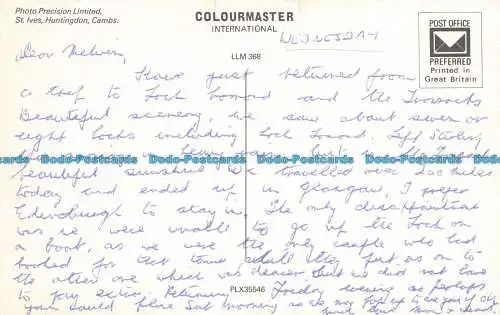 Photo Precision Limited,
St. Ives, Huntingdon, Cambs.
COLOURMASTER
INTERNATIONAL
POST OFFICE
PREFERRED
Printed in
Great Britain
WEDNESDAY
LLM 368
Dear Melvin,
Have just returned from
a trip to Loch Lomond and the Trossachs
Beautiful scenery, we saw about seven or
eight lochs including Loch Lomond. Left
Dodo-Postcards Dodo-Postcards Dodo-Postcards Dodo-Postcards Dodo-Postcards
beautiful sunshine. We travelled over 200 miles
today and ended up in Glasgow, I prefer
Edinburgh to stay in. The only disappointment
was we were unable to go up the Loch on
a boat, as we were the only couple who had
booked for that tour they put us on to
the other one which was dearer but we did not have
to pay extra. Returning Friday evening so perhaps
you could phone Sat morning
PLX35546